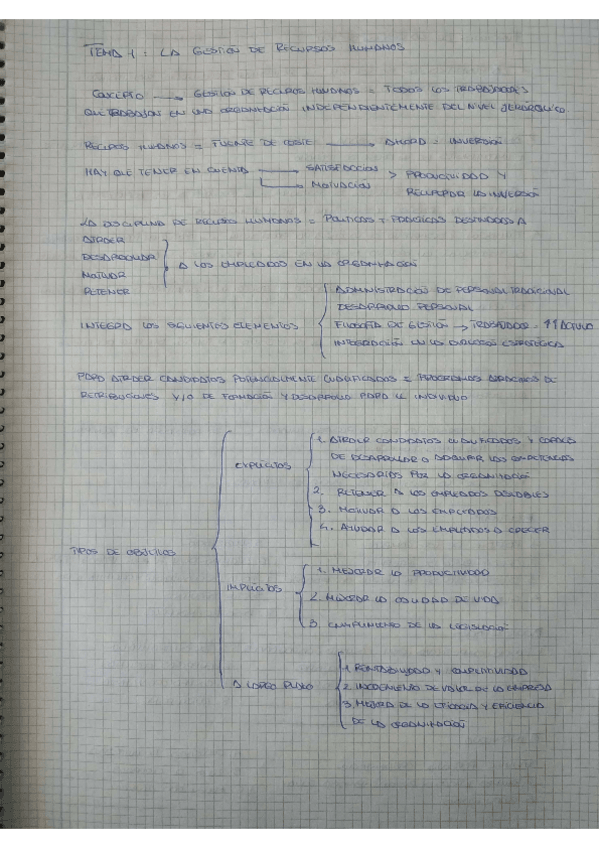 TEMA 1: LA GESTIÓN DE RECURSOS HUMANOS
CONCEPTO → GESTIÓN DE RECURSOS HUMANOS = TODOS LOS TRABAJADORES
QUE TRABAJAN EN UNA ORGANIZACIÓN INDEPENDIENTEMENTE DEL NIVEL JERÁRQUICO.
RECURSOS HUMANOS = FUENTE DE COSTE → AHORA = INVERSIÓN
HAY QUE TENER EN CUENTA → SATISFACCIÓN > PRODUCTIVIDAD Y
→ MOTIVACIÓN RECUPERAR LA INVERSIÓN
LA DISCIPLINA DE RECURSOS HUMANOS = POLÍTICAS + PRÁCTICAS DESTINADAS A
ATRAER
DESARROLLAR
MOTIVAR
RETENER
A LOS EMPLEADOS EN LA ORGANIZACIÓN
INTEGRA LOS SIGUIENTES ELEMENTOS
ADMINISTRACIÓN DE PERSONAL TRADICIONAL
DESARROLLO PERSONAL
FILOSOFÍA DE GESTIÓN → TRABAJADOR = ↑↑ ACTIVO
INTEGRACIÓN EN LA DIRECCIÓN ESTRATÉGICA
PARA ATRAER CANDIDATOS POTENCIALMENTE CUALIFICADOS = PROGRAMAS DE
RETRIBUCIONES Y/O DE FORMACIÓN Y DESARROLLO PARA EL INDIVIDUO
TIPOS DE OBJETIVOS
EXPLÍCITOS
1. ATRAER CANDIDATOS CUALIFICADOS Y CAPACES
DE DESARROLLAR O ADQUIRIR LAS COMPETENCIAS
NECESARIAS POR LA ORGANIZACIÓN
2. RETENER A LOS EMPLEADOS DESEABLES
3. MOTIVAR A LOS EMPLEADOS
4. AYUDAR A LOS EMPLEADOS A CRECER
IMPLÍCITOS
1. MEJORAR LA PRODUCTIVIDAD
2. MEJORAR LA CALIDAD DE VIDA
3. CUMPLIMIENTO DE LA LEGISLACIÓN
A LARGO PLAZO
1. RENTABILIDAD Y COMPETITIVIDAD
2. INCREMENTO DE VALOR DE LA EMPRESA
3. MEJORA DE LA EFICACIA Y EFICIENCIA
DE LA ORGANIZACIÓN